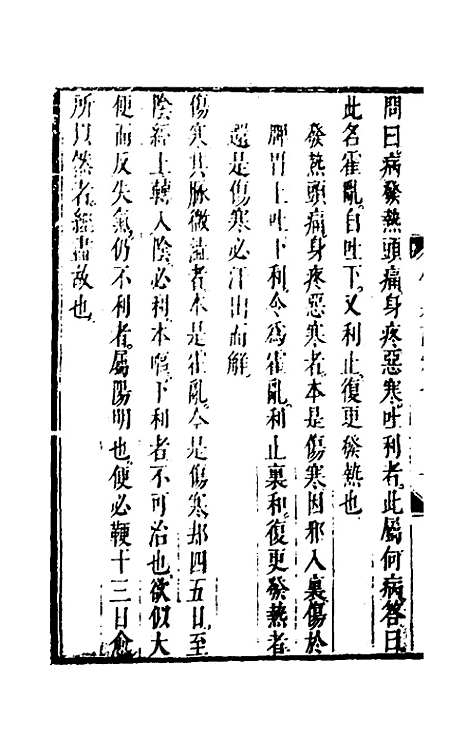 問曰病發熱頭痛身疼惡寒吐利者此屬何病答曰
此名霍亂自吐下又利止復更發熱也
發熱頭痛身疼惡寒者本是傷寒因邪入裏傷於
脾胃上吐下利令為霍亂利止裏和復更發熱者
還是傷寒必汗出而解
傷寒其脉微澁者本是霍亂今是傷寒却四五日至
陰經上轉入陰必利本嘔下利者不可治也欲似大
便而反失氣仍不利者屬陽明也便必鞕十三日愈
所以然者經盡故也